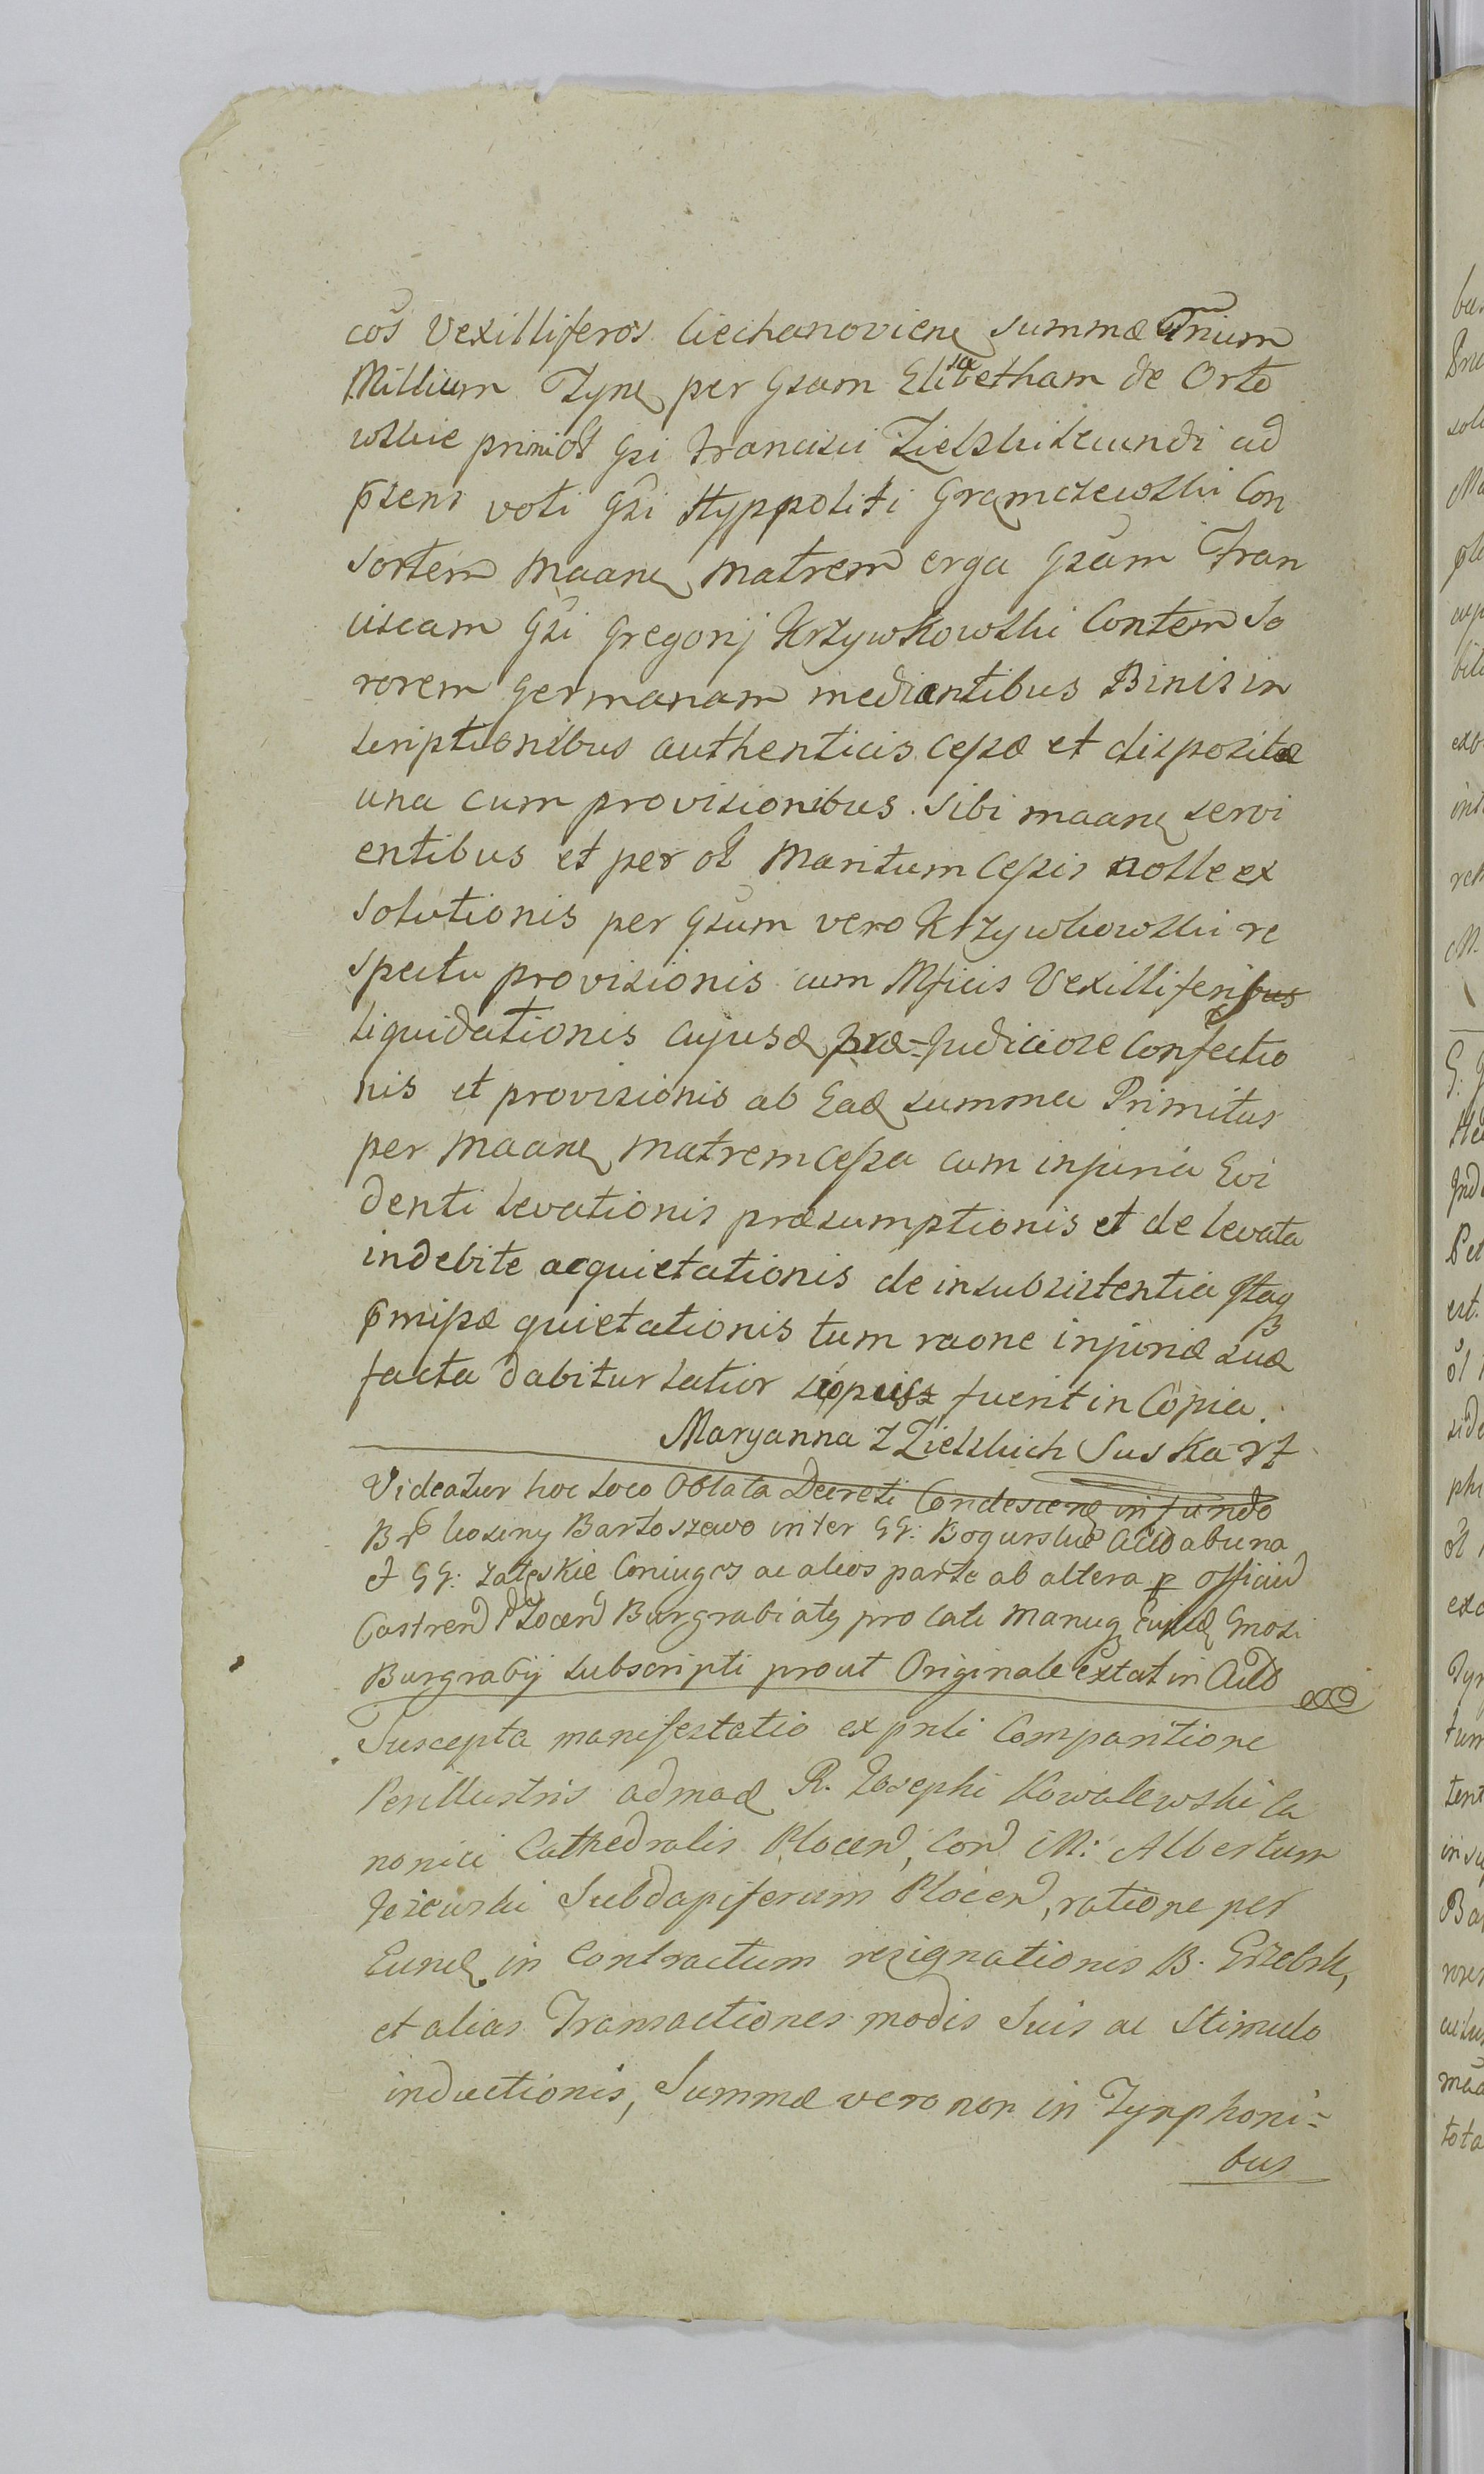 cos Vexilliferos Ciechanovien summæ Trium
Millium Tyn per Gsam Elisabetham de Orło
wskie primi ol Gsi Francisci Zielski secundi ad
psens voti Gsi Hyppoliti Gramczewski Con
sortem Maane Matrem erga Gsam Fran
ciscam Gsi Gregorij Krzywkowski Contem So
rorem germanam mediantibus Binis in
scriptionibus authenticis cessæ et dispositæ
una cum provisionibus sibi maane servi
entibus et per ol Maritum cessis nolle ex
solutionis per Gsum vero Krzywkowski re
spectu provisionis cum Mficis Vexilliferis
liquidationis cujusd præ-judiciose confectio
nis et provisionis ab Ead summa Primitus
per Maane Matrem cessa cum injuria Evi
denti levationis præsumptionis et de levata
indebite acquietationis de insubsistentia
pmissæ quietationis tum raone injuriæ suæ
facta dabitur latior si opus fuerit in Copia.
Maryanna z Zielskich Suska
Videatur hoc loco Oblata Decreti Condescen in fundo
Br Koziny Bartoszewo inter GG: Bogurskie Act ab una
et GG: Załęskie Coniuges ac alios parte ab altera p officiu
Castren Plocen Burgrabiat pro lati manuq Gnosi
Burgrabij subscripti prout Originale Extat in Act
Suscepta manifestatio ex pnti Comparitione
Perillustris admod R. Josephi Kowalewski Ca
nonici Cathedralis Plocen, Con M: Albertum
Jeżewski Subdapiferum Plocen, ratione per
Eund in Contractum resignationis B. Grzebsk,
et alias Transactiones modis suis ac Stimulo
inductionis, Summæ vero non in Tynphoni=
bus